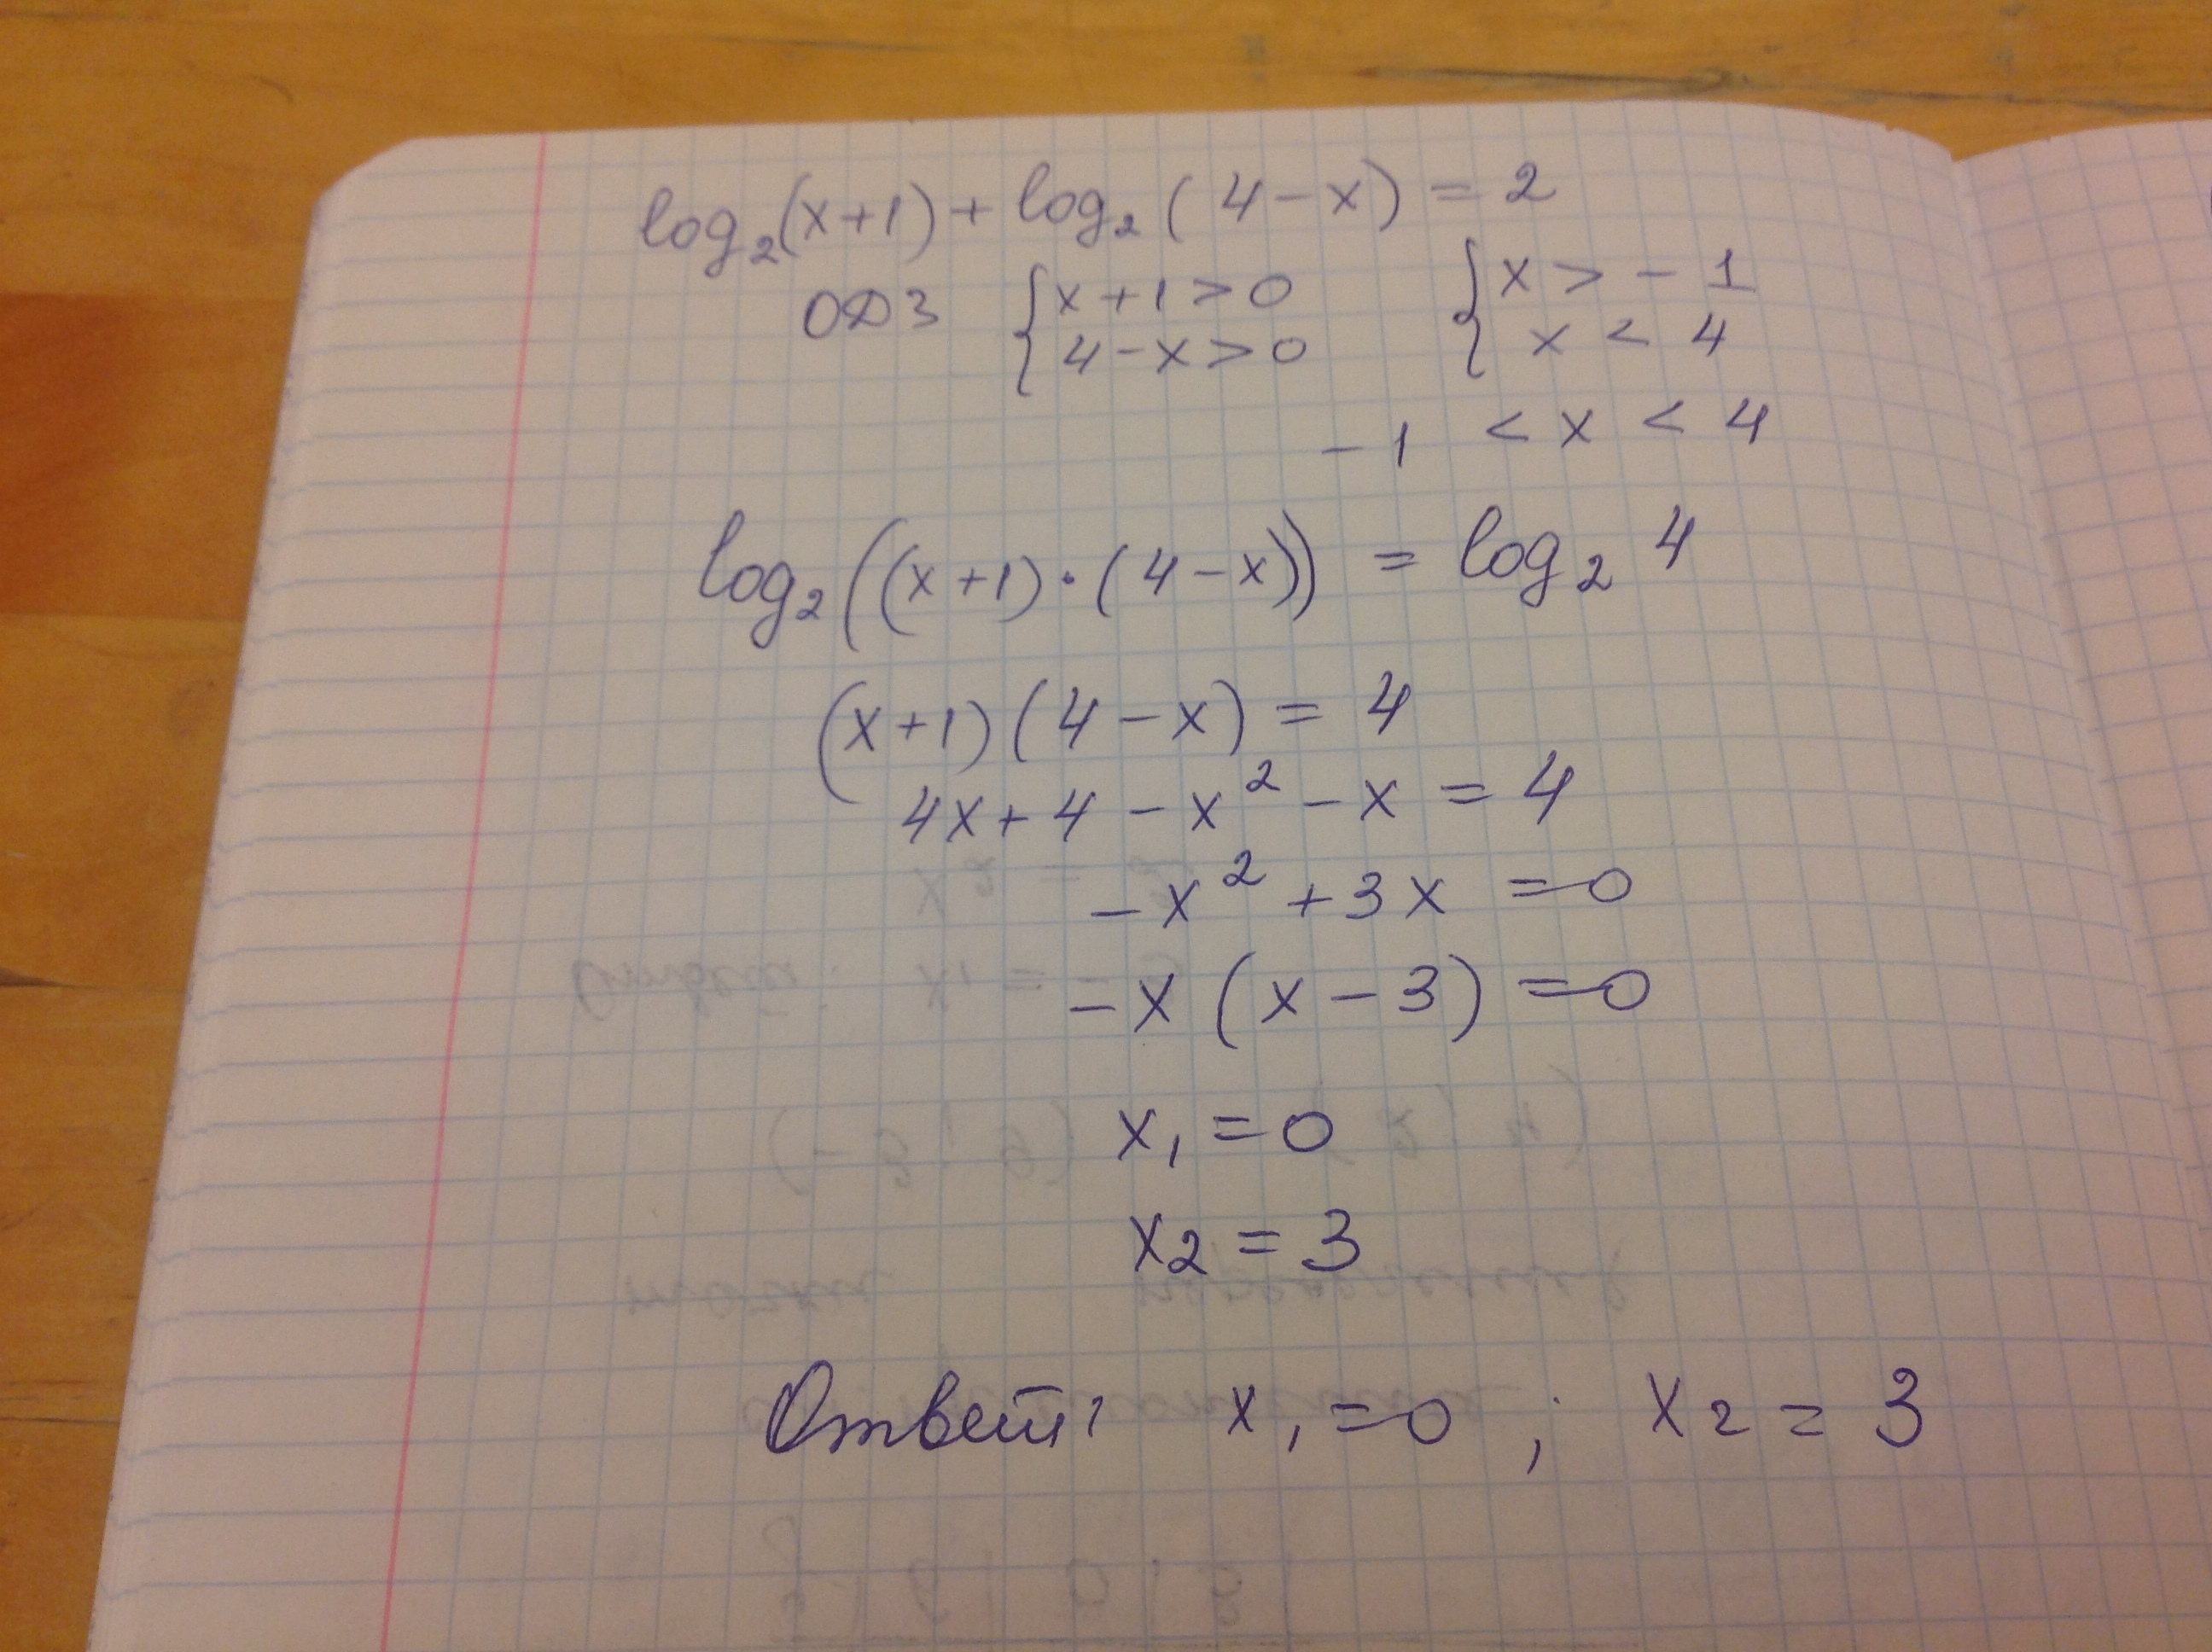 log₂(x+1) + log₂(4-x) = 2
ОДЗ { x+1>0 { x > -1
4-x>0 x < 4
-1 < x < 4
log₂((x+1)·(4-x)) = log₂ 4
(x+1)(4-x) = 4
4x+4-x²-x = 4
-x²+3x =0
-x(x-3)=0
x₁=0
x₂=3
Ответ: x₁=0 ; x₂=3